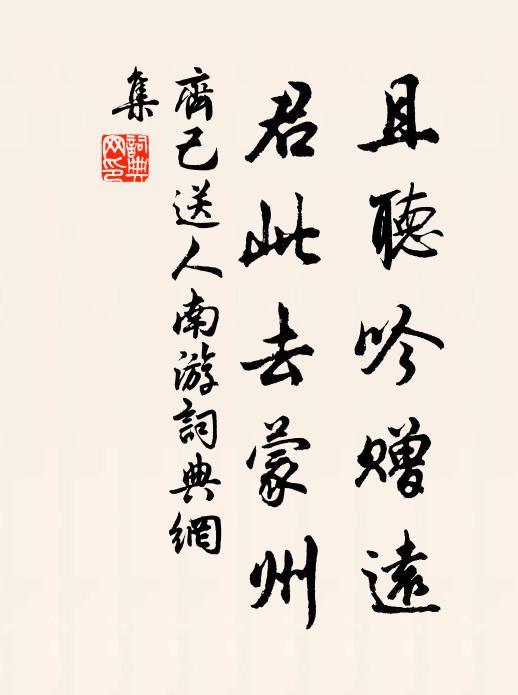 且聽吟贈遠
君此去蒙州
齊己送人南游詞典網
集
詞典
网印